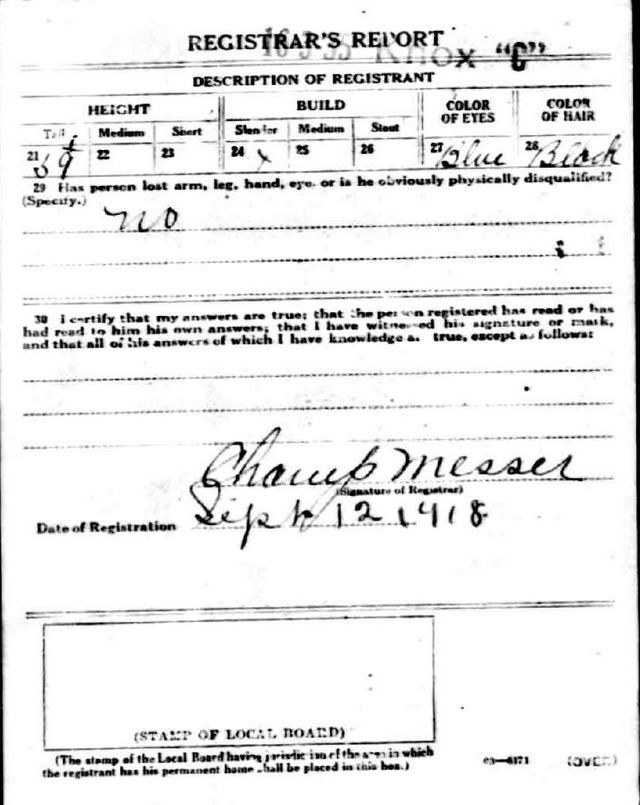 REGISTRAR'S REPORT
Knox "C"
DESCRIPTION OF REGISTRANT
HEIGHT BUILD COLOR OF EYES COLOR OF HAIR
Tall Medium Short Slender Medium Stout
21 22 23 24 x 25 26 27 Blue 28 Black
29 Has person lost arm, leg, hand, eye, or is he obviously physically disqualified?
(Specify.)
no
30 I certify that my answers are true; that the person registered has read or has
had read to him his own answers; that I have witnessed his signature or mark,
and that all of his answers of which I have knowledge are true, except as follows:
Champ Messer
(Signature of Registrar)
Date of Registration Sept 12 1918
(STAMP OF LOCAL BOARD)
(The stamp of the Local Board having jurisdiction of the area in which
the registrant has his permanent home shall be placed in this box.)
03—6171 (OVER)